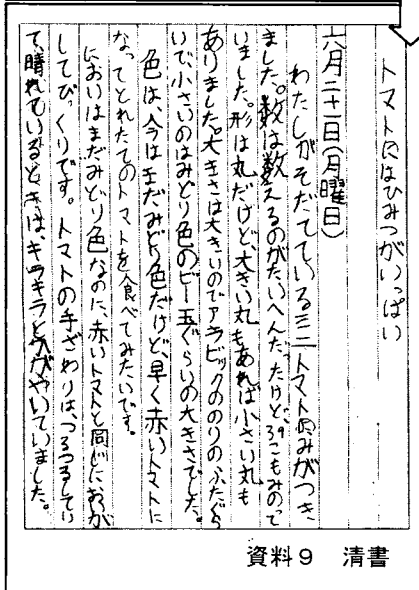 トマトにはひみつがいっぱい
六月二十一日(月曜日)
わたしがそだてているミニトマトのみがつき
ました。数は数えるのがたいへんだったけど、39こもみのって
いました。形は丸だけど、大きい丸もあれば小さい丸も
ありました。大きさは大きいのでアラビックののりのふたぐら
いで、小さいのはみどり色のビー玉ぐらいの大きさでした。
色は、今はまだみどり色だけど、早く赤いトマトに
なってとれたてのトマトを食べてみたいです。
においはまだみどり色なのに、赤いトマトと同じにおいが
してびっくりです。トマトの手ざわりは、つるつるしてい
て、晴れているときは、キラキラとかがやいていました。
資料9 清書